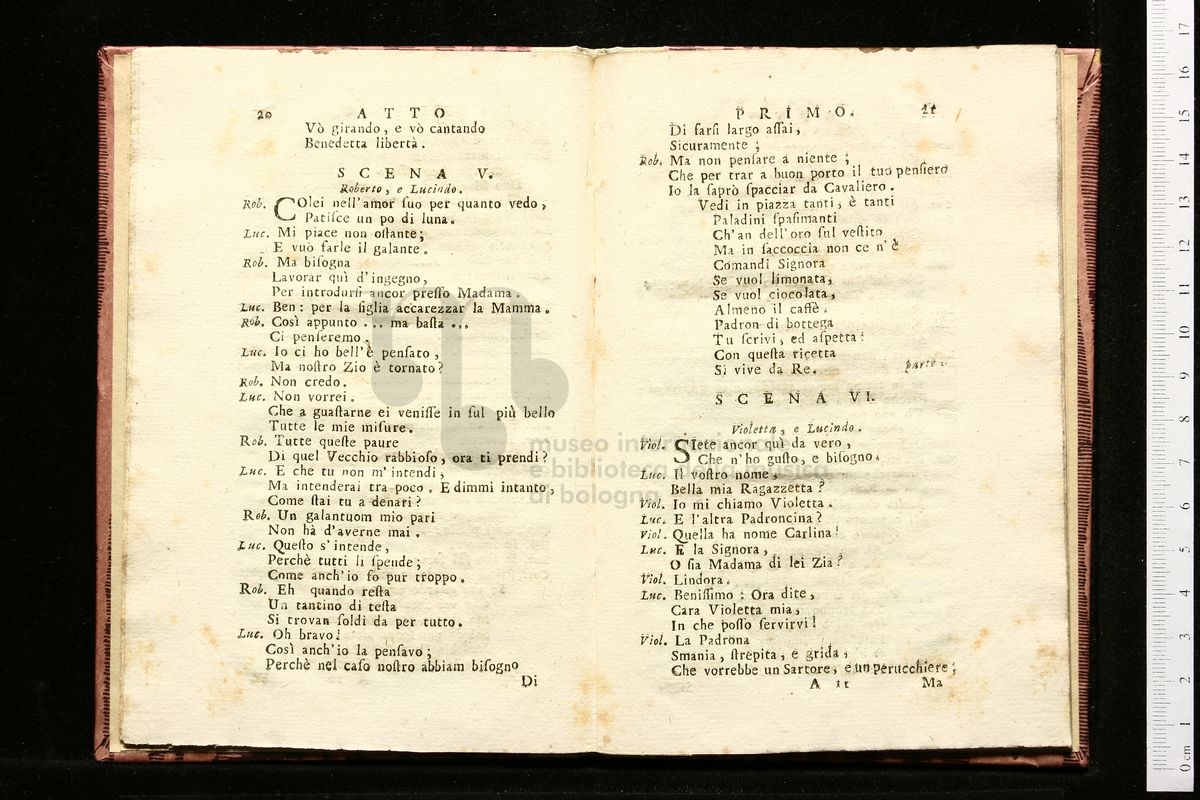 20 ATTO
Vò girando, e vò cantando
Benedetta libertà.
SCENA V.
Roberto, e Lucindo.
Rob. COlei nell'amor ſuo per quanto vedo,
Patiſce un po di luna.
Luc. Mi piace non oſtante;
E vuò farle il galante.
Rob. Ma biſogna
Lavorar quì d'ingegno,
Per introdurſi ancor preſſo Madama.
Luc. Ben: per la figlia accarezzar la Mamma.
Rob. Così appunto ... ma baſta ...
Ci penſeremo.
Luc. Io ci ho bell'è penſato,
Ma noſtro Zio è tornato?
Rob. Non credo.
Luc. Non vorrei.
Che a guaſtarne ei veniſſe in ſul più bello
Tutte le mie miſure.
Rob. Tutte queſte paure
Di quel Vecchio rabbioſo, ora ti prendi?
Luc. E che tu non m'intendi,
Ma intenderai tra poco. E dimmi intanto,
Come ſtai tu a denari?
Rob. Un galantuom mio pari
Non hà d'averne mai.
Luc. Queſto s'intende,
Perchè tutti li ſpende;
Come anch'io fo pur troppo.
Rob. Eh quando reſta
Un tantino di teſta
Si trovan ſoldi da per tutto.
Luc. Oh bravo!
Così anch'io la penſavo;
Perchè nel caſo noſtro abbiam biſogno
Di
PRIMO. 21
Di farſi largo aſſai,
Sicuramente;
Rob. Ma non penſare a niente;
Che per trar a buon porto il tuo penſiero
Io la ſaprò ſpacciar da Cavaliero.
Vedi in piazza tanti, è tanti
Paladini ſpaſimanti
Ch'an dell'oro ſul veſtito
Ma in ſaccoccia non ce n'è
Comandi Signora
Se vuol limonata,
Se vuol ciocolata,
Almeno il caffè.
Padron di bottega
Tu ſcrivi, ed aſpetta:
Con queſta ricetta
Si vive da Re. parte.
SCENA VI.
Violetta, e Lucindo.
Viol. SIete ancor quì da vero,
Che n'ho guſto, e biſogno.
Luc. Il voſtro nome,
Bella mia Ragazzetta?
Viol. Io mi chiamo Violetta.
Luc. E l'altra Padroncina?
Viol. Quella ha nome Carlina!
Luc. E la Signora,
O ſia Madama di lei Zia?
Viol. Lindora.
Luc. Beniſſimo: Ora dite,
Cara Violetta mia,
In che poſſo ſervirvi!
Viol. La Padrona
Smania, ſtrepita, e grida,
Che vorrebbe un Sartore, e un perucchiere;
A 11 Ma
museo internazionale
e biblioteca della musica
di bologna
17
16
15
14
13
12
11
10
9
8
7
6
5
4
3
2
1
0 cm